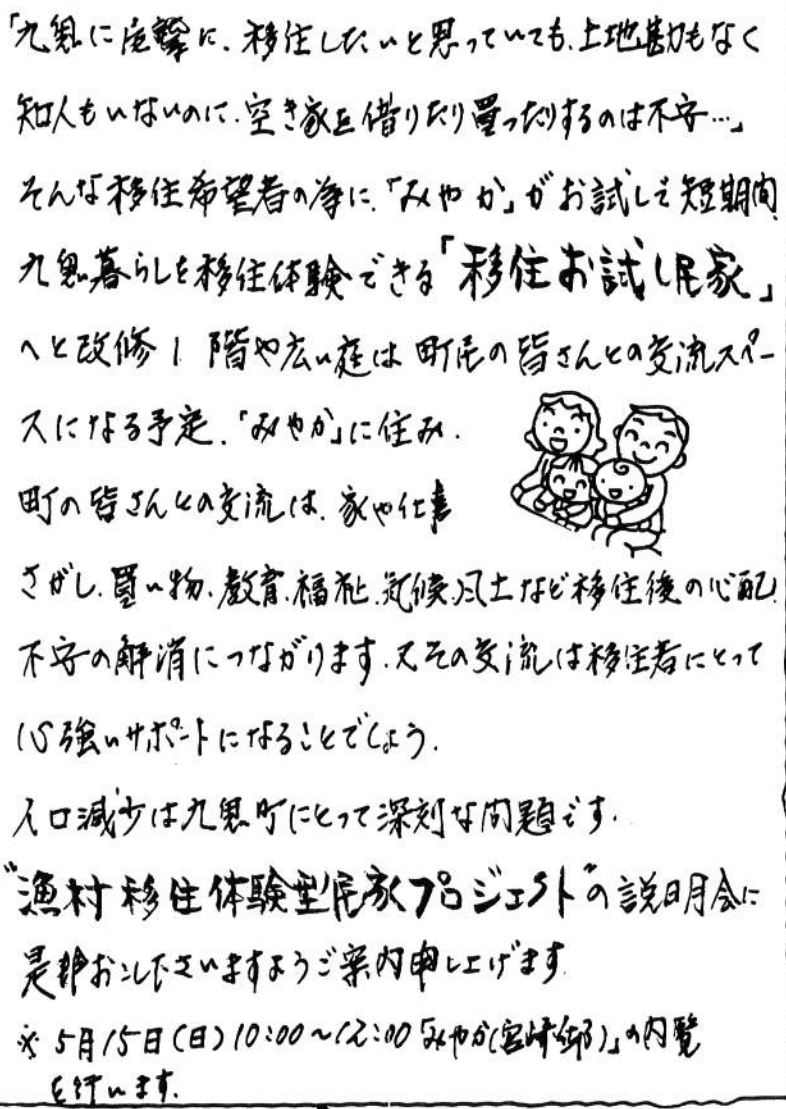 「九鬼に魅力に、移住したいと思っていても、土地勘もなく
知人もいないのに、空き家を借りたり買ったりするのは不安…」
そんな移住希望者の為に、「みやか」がお試しで短期間、
九鬼暮らしを移住体験できる「移住お試し民家」
へと改修 1階や広い庭は町民の皆さんとの交流スペー
スになる予定。「みやか」に住み、
町の皆さんとの交流は、家や仕事
さがし、買い物、教育、福祉、気候、風土など移住後の心配、
不安の解消につながります。又その交流は移住者にとって
心強いサポートになることでしょう。
人口減少は九鬼町にとって深刻な問題です。
“漁村移住体験型民家プロジェクト”の説明会に
是非お越し下さいますようご案内申し上げます。
※ 5月15日(日)10:00～12:00「みやか(宮崎邸)」の内覧
を行います。